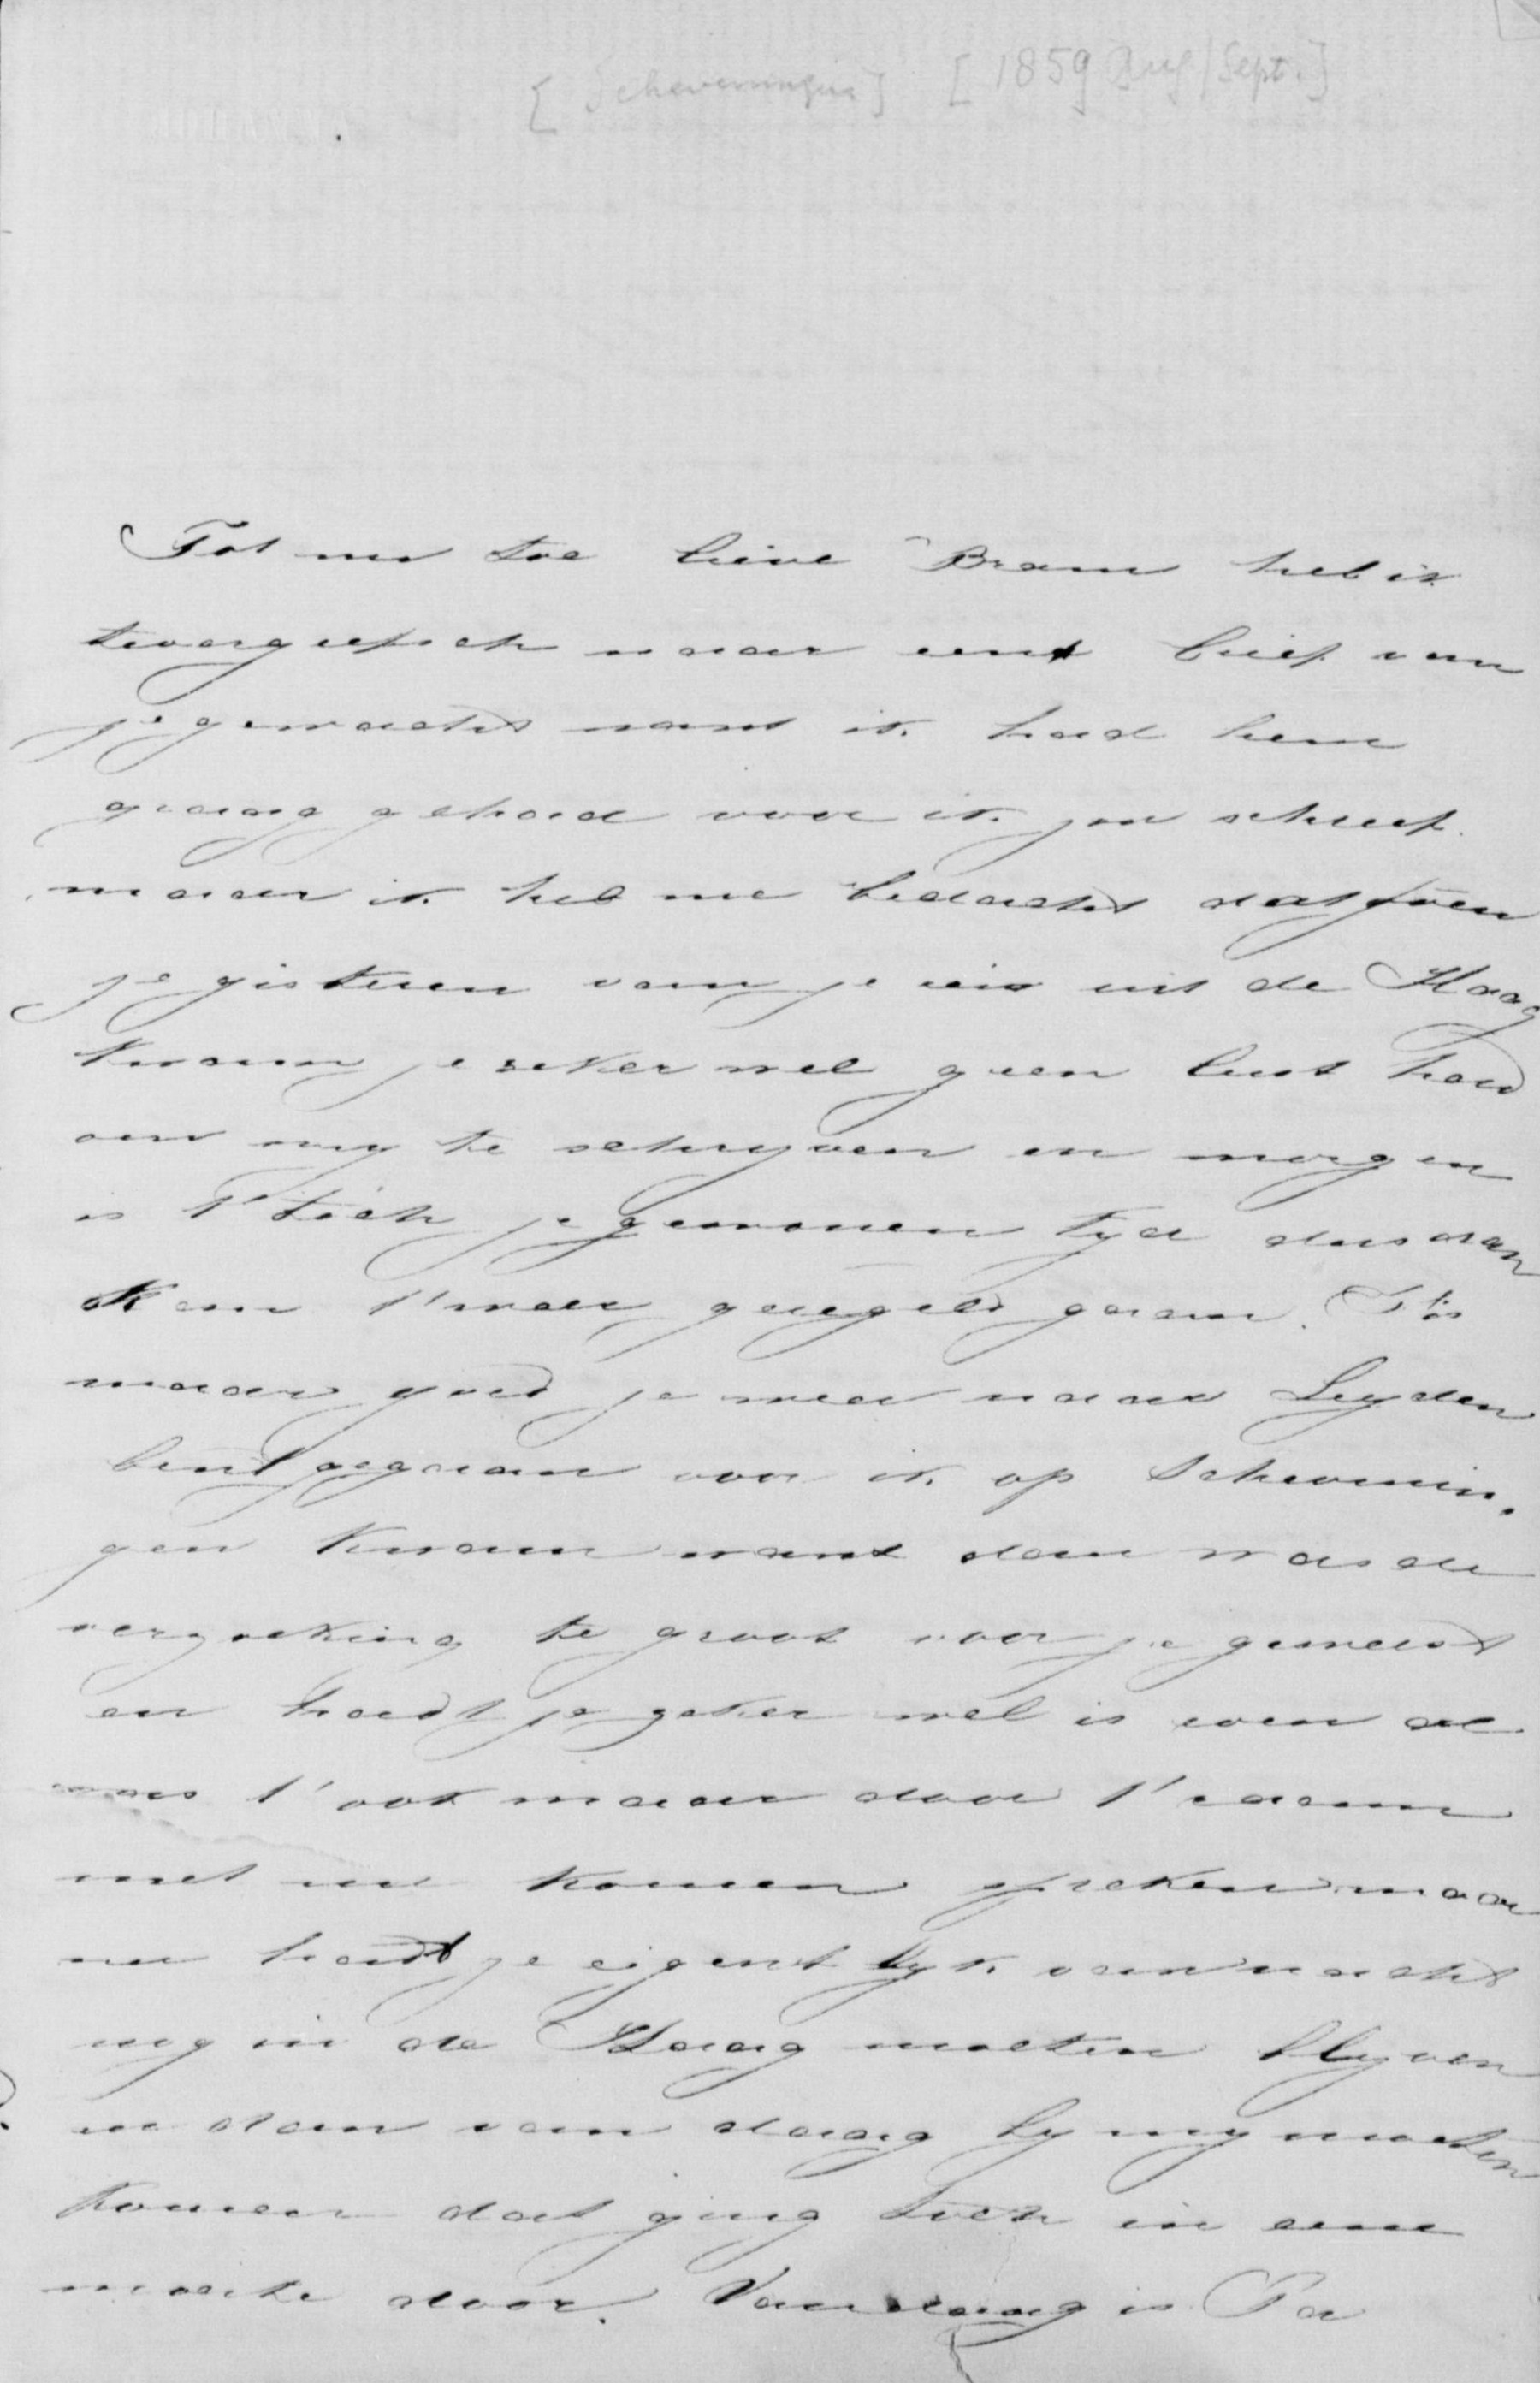 [Scheveningen] [1859 Aug/Sept.]
Tot nu toe lieve Bram heb ik
tevergeefsch naar een brief van
je gewacht want ik had hem
graag gehad voor ik jou schreef.
maar ik heb me bedacht dat toen
je gisteren van je reis uit de Haag
kwam je zeker wel geen lust had
om my te schryven en morgen
is t' toch je gewonen tyd dus dan
kan t' weer geregeld gaan. T' is
maar goed je weer naar Leyden
bent gegaan voor ik op Schevenin,
gen kwam want dan was de
verzoeking te groot voor je geweest
en hadt je zeker wel is even al
was t' ook maar door t' raam
met me komen spreken maar
nu hadt je eigentlyk van nacht
nog in de Haag moeten blyven
en dan van daag by my moeten
komen dat ging toch in eene
moeite door. Vandaag is Pa